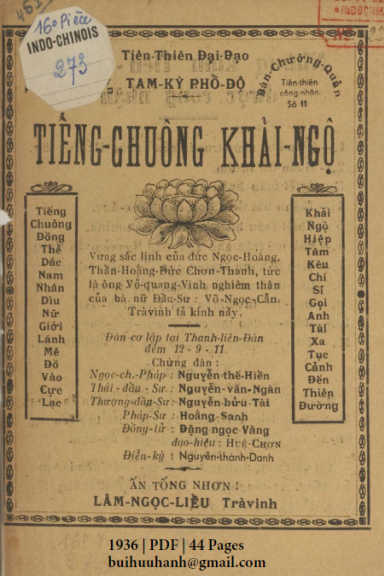 16o Pièce
INDO-CHINOIS
273
Tiên-Thiên Đại-Đạo
TAM-KỲ PHỔ-ĐỘ
Bản-Chưởng-Quản
Tiên-thiên
công-nhân
Số 11
TIẾNG-CHUÔNG KHẢI-NGỘ
Tiếng
Chuông
Đồng
Thể
Dắc
Nam
Nhân
Dìu
Nữ
Giới
Lánh
Mê
Đồ
Vào
Cực
Lạc
Vưng sắc lịnh của đức Ngọc-Hoàng,
Thần-Hoàng-Đức Chơn-Thành, tức
là ông Võ-quang-Vinh, nghiêm thân
của bà nữ Đầu-Sư: Võ-Ngọc-Cẩn.
Tràvinh tả kinh nầy.
Đàn cơ lập tại Thanh-liên-Đàn
đêm 12-9-11.
Chứng đàn:
Ngọc-ch.-Pháp: Nguyễn-thế-Hiền
Thái-đầu-Sư: Nguyễn-văn-Ngàn
Thượng-đầu-Sư: Nguyễn-bửu-Tài
Pháp-Sư: Hoằng-Sanh
Đồng-tử: Đặng-ngọc-Vàng
đạo-hiệu: HUỆ-CHƠN
Điển-ký: Nguyễn-thành-Danh
Khải
Ngộ
Hiệp
Tâm
Kêu
Chí
Sĩ
Gọi
Anh
Tài
Xa
Tục
Cảnh
Đến
Thiên
Đường
ẤN TỐNG NHƠN:
LÂM-NGỌC-LIỀU Tràvinh
1936 | PDF | 44 Pages
buihuuhanh@gmail.com